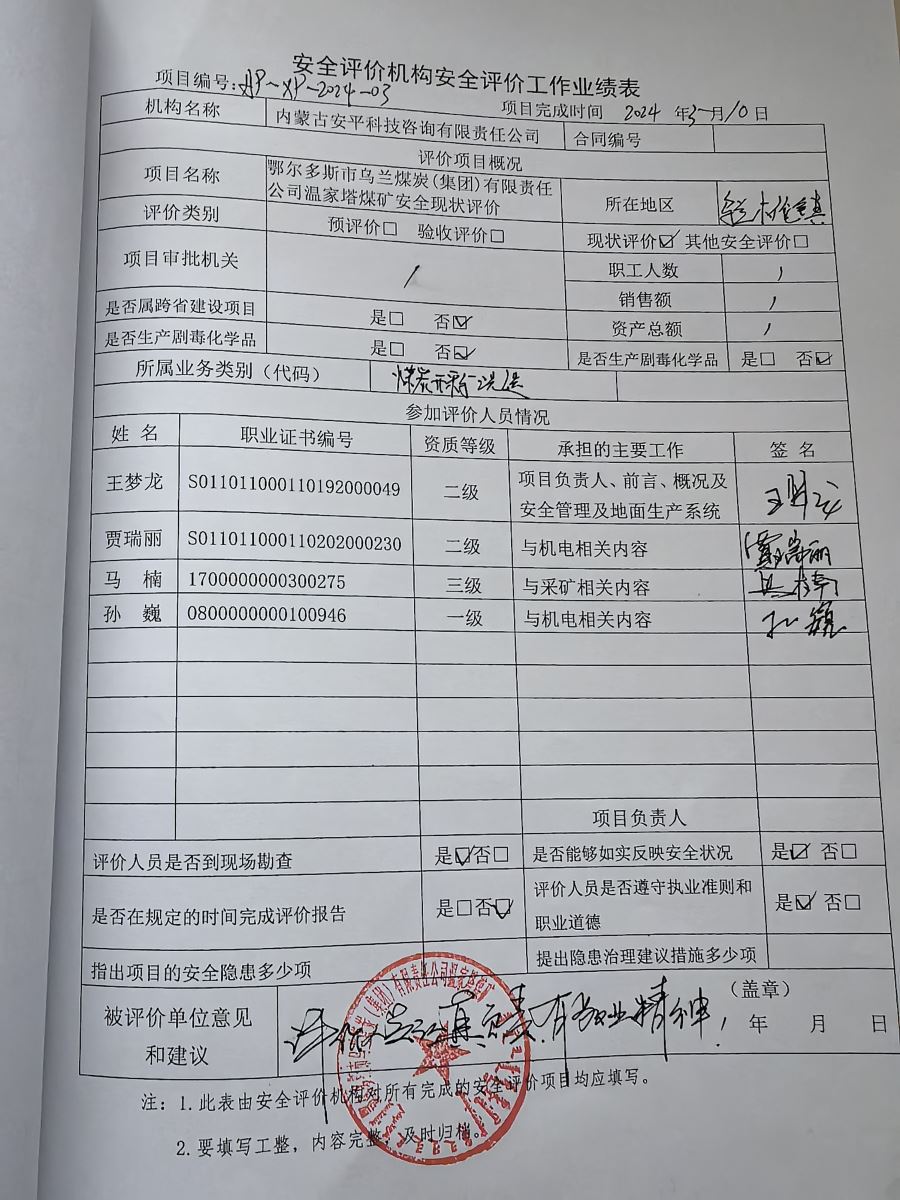 安全评价机构安全评价工作业绩表
项目编号:AP-XP-2024-03
项目完成时间 2024 年5月10日
机构名称 内蒙古安平科技咨询有限责任公司 合同编号
评价项目概况
项目名称 鄂尔多斯市乌兰煤炭(集团)有限责任公司温家塔煤矿安全现状评价 所在地区
评价类别 预评价□ 验收评价□ 现状评价☑ 其他安全评价□
项目审批机关 / 职工人数 /
销售额 /
是否属跨省建设项目 是□ 否☑ 资产总额 /
是否生产剧毒化学品 是□ 否☑ 是否生产剧毒化学品 是□ 否☑
所属业务类别（代码） 煤炭开采
参加评价人员情况
姓 名 职业证书编号 资质等级 承担的主要工作 签 名
王梦龙 S011011000110192000049 二级 项目负责人、前言、概况及安全管理及地面生产系统
贾瑞丽 S011011000110202000230 二级 与机电相关内容 贾瑞丽
马 楠 1700000000300275 三级 与采矿相关内容 马楠
孙 巍 0800000000100946 一级 与机电相关内容 孙巍
项目负责人
评价人员是否到现场勘查 是☑否□ 是否能够如实反映安全状况 是☑ 否□
是否在规定的时间完成评价报告 是□否☑ 评价人员是否遵守执业准则和职业道德 是☑ 否□
指出项目的安全隐患多少项 提出隐患治理建议措施多少项
被评价单位意见和建议 认真负责,有敬业精神! (盖章)
年 月 日
注：1.此表由安全评价机构对所有完成的安全评价项目均应填写。
2.要填写工整，内容完整，及时归档。